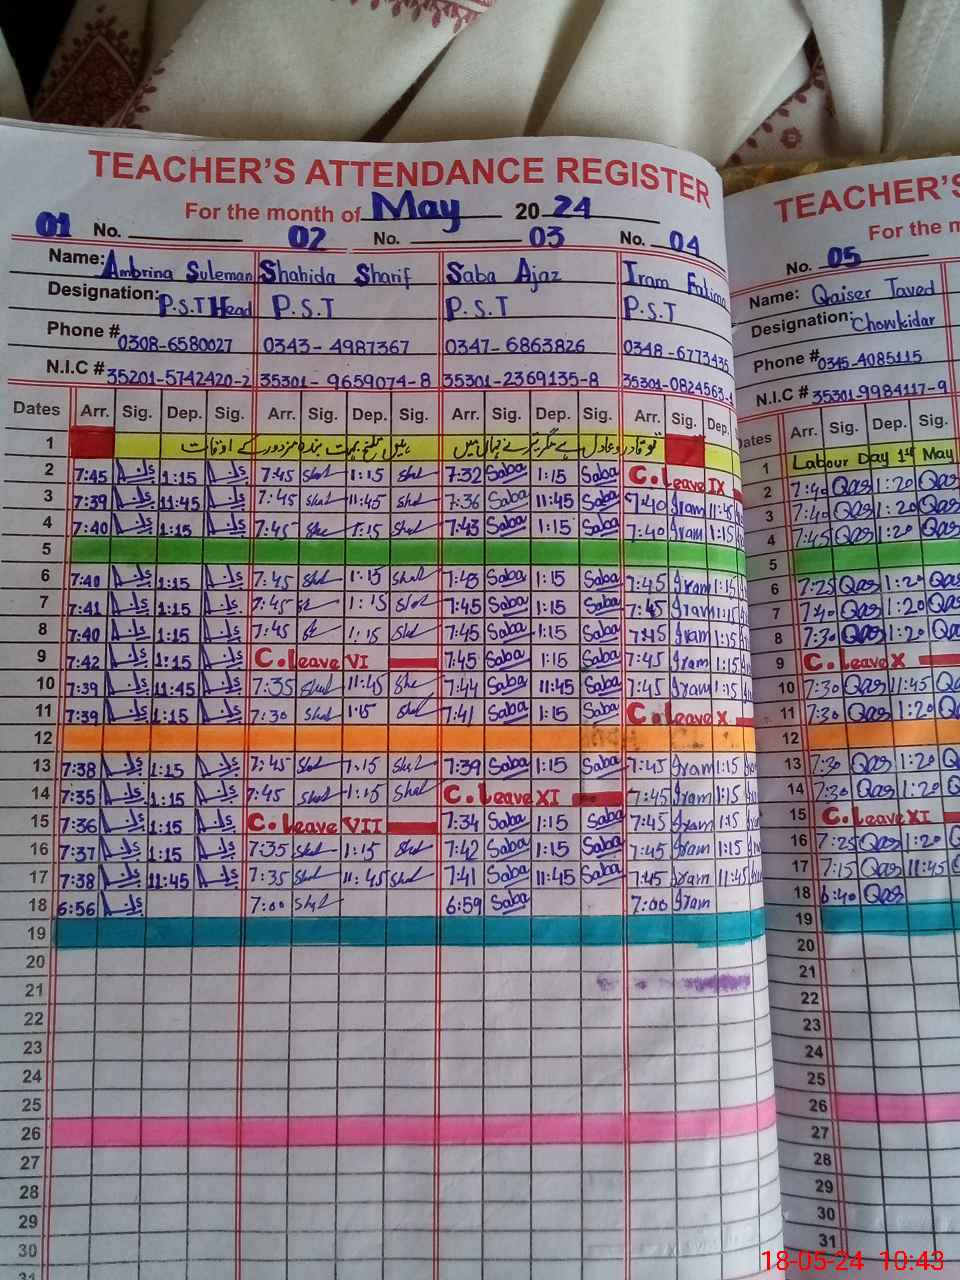 TEACHER'S ATTENDANCE REGISTER
For the month of May 2024
01 No. 02 No. 03 No. 04
Name: Ambrina Suleman Shahida Sharif Saba Ajaz Iram Fatima
Designation: P.S.T Head P.S.T P.S.T P.S.T
Phone # 0308-6580027 0343-4987367 0347-6863826 0348-6773435
N.I.C # 35201-5742420-2 35301-9659074-8 35301-2369135-8 35301-0824563-
Dates Arr. Sig. Dep. Sig. Arr. Sig. Dep. Sig. Arr. Sig. Dep. Sig. Arr. Sig. Dep.
1 تو قادر و عادل ہے مگر تیرے جہاں میں ہیں تلخ بہت بندہ مزدور کے اوقات
2 7:45 1:15 7:45 Shal 1:15 Shal 7:32 Saba 1:15 Saba C.Leave IX
3 7:39 11:45 7:45 Shal 11:45 Shal 7:36 Saba 11:45 Saba 7:40 Iram 11:45
4 7:40 1:15 7:45 1:15 7:43 Saba 1:15 Saba 7:40 Iram 1:15
5
6 7:40 1:15 7:45 Shal 1:15 Shal 7:43 Saba 1:15 Saba 7:45 Iram 1:15
7 7:41 1:15 7:45 1:15 Shal 7:45 Saba 1:15 Saba 7:45 Iram 1:15
8 7:40 1:15 7:45 1:15 Shal 7:45 Saba 1:15 Saba 7:45 Iram 1:15
9 7:42 1:15 C.Leave VI 7:45 Saba 1:15 Saba 7:45 Iram 1:15
10 7:39 11:45 7:35 Shal 11:45 7:44 Saba 11:45 Saba 7:45 Iram 1:15
11 7:39 1:15 7:30 Shal 1:15 Shal 7:41 Saba 1:15 Saba C.Leave X
12
13 7:38 1:15 7:45 Shal 1:15 Shal 7:39 Saba 1:15 Saba 7:45 Iram 1:15
14 7:35 1:15 7:45 Shal 1:15 Shal C.Leave XI 7:45 Iram 1:15
15 7:36 1:15 C.Leave VII 7:34 Saba 1:15 Saba 7:45 Iram 1:15
16 7:37 1:15 7:35 Shal 1:15 Shal 7:42 Saba 1:15 Saba 7:45 Iram 1:15
17 7:38 11:45 7:35 Shal 11:45 Shal 7:41 Saba 11:45 Saba 7:45 Iram 11:45
18 6:56 7:00 Shal 6:59 Saba 7:00 Iram
19
20
21
22
23
24
25
26
27
28
29
30
31
TEACHER'S
For the m
No. 05
Name: Qaiser Javed
Designation: Chowkidar
Phone # 0345-4085115
N.I.C # 35301-9984117-9
Dates Arr. Sig. Dep. Sig.
1 Labour Day 1st May
2 7:40 Qas 1:20 Qas
3 7:40 Qas 1:20 Qas
4 7:45 Qas 1:20 Qas
5
6 7:25 Qas 1:20 Qas
7 7:40 Qas 1:20 Qas
8 7:30 Qas 1:20 Qas
9 C.Leave X
10 7:30 Qas 11:45 Qas
11 7:30 Qas 1:20 Qas
12
13 7:30 Qas 1:20 Qas
14 7:30 Qas 1:20 Qas
15 C.Leave XI
16 7:25 Qas 1:20 Qas
17 7:15 Qas 11:45 Qas
18 6:40 Qas
19
20
21
22
23
24
25
26
27
28
29
30
31
18-05-24 10:43